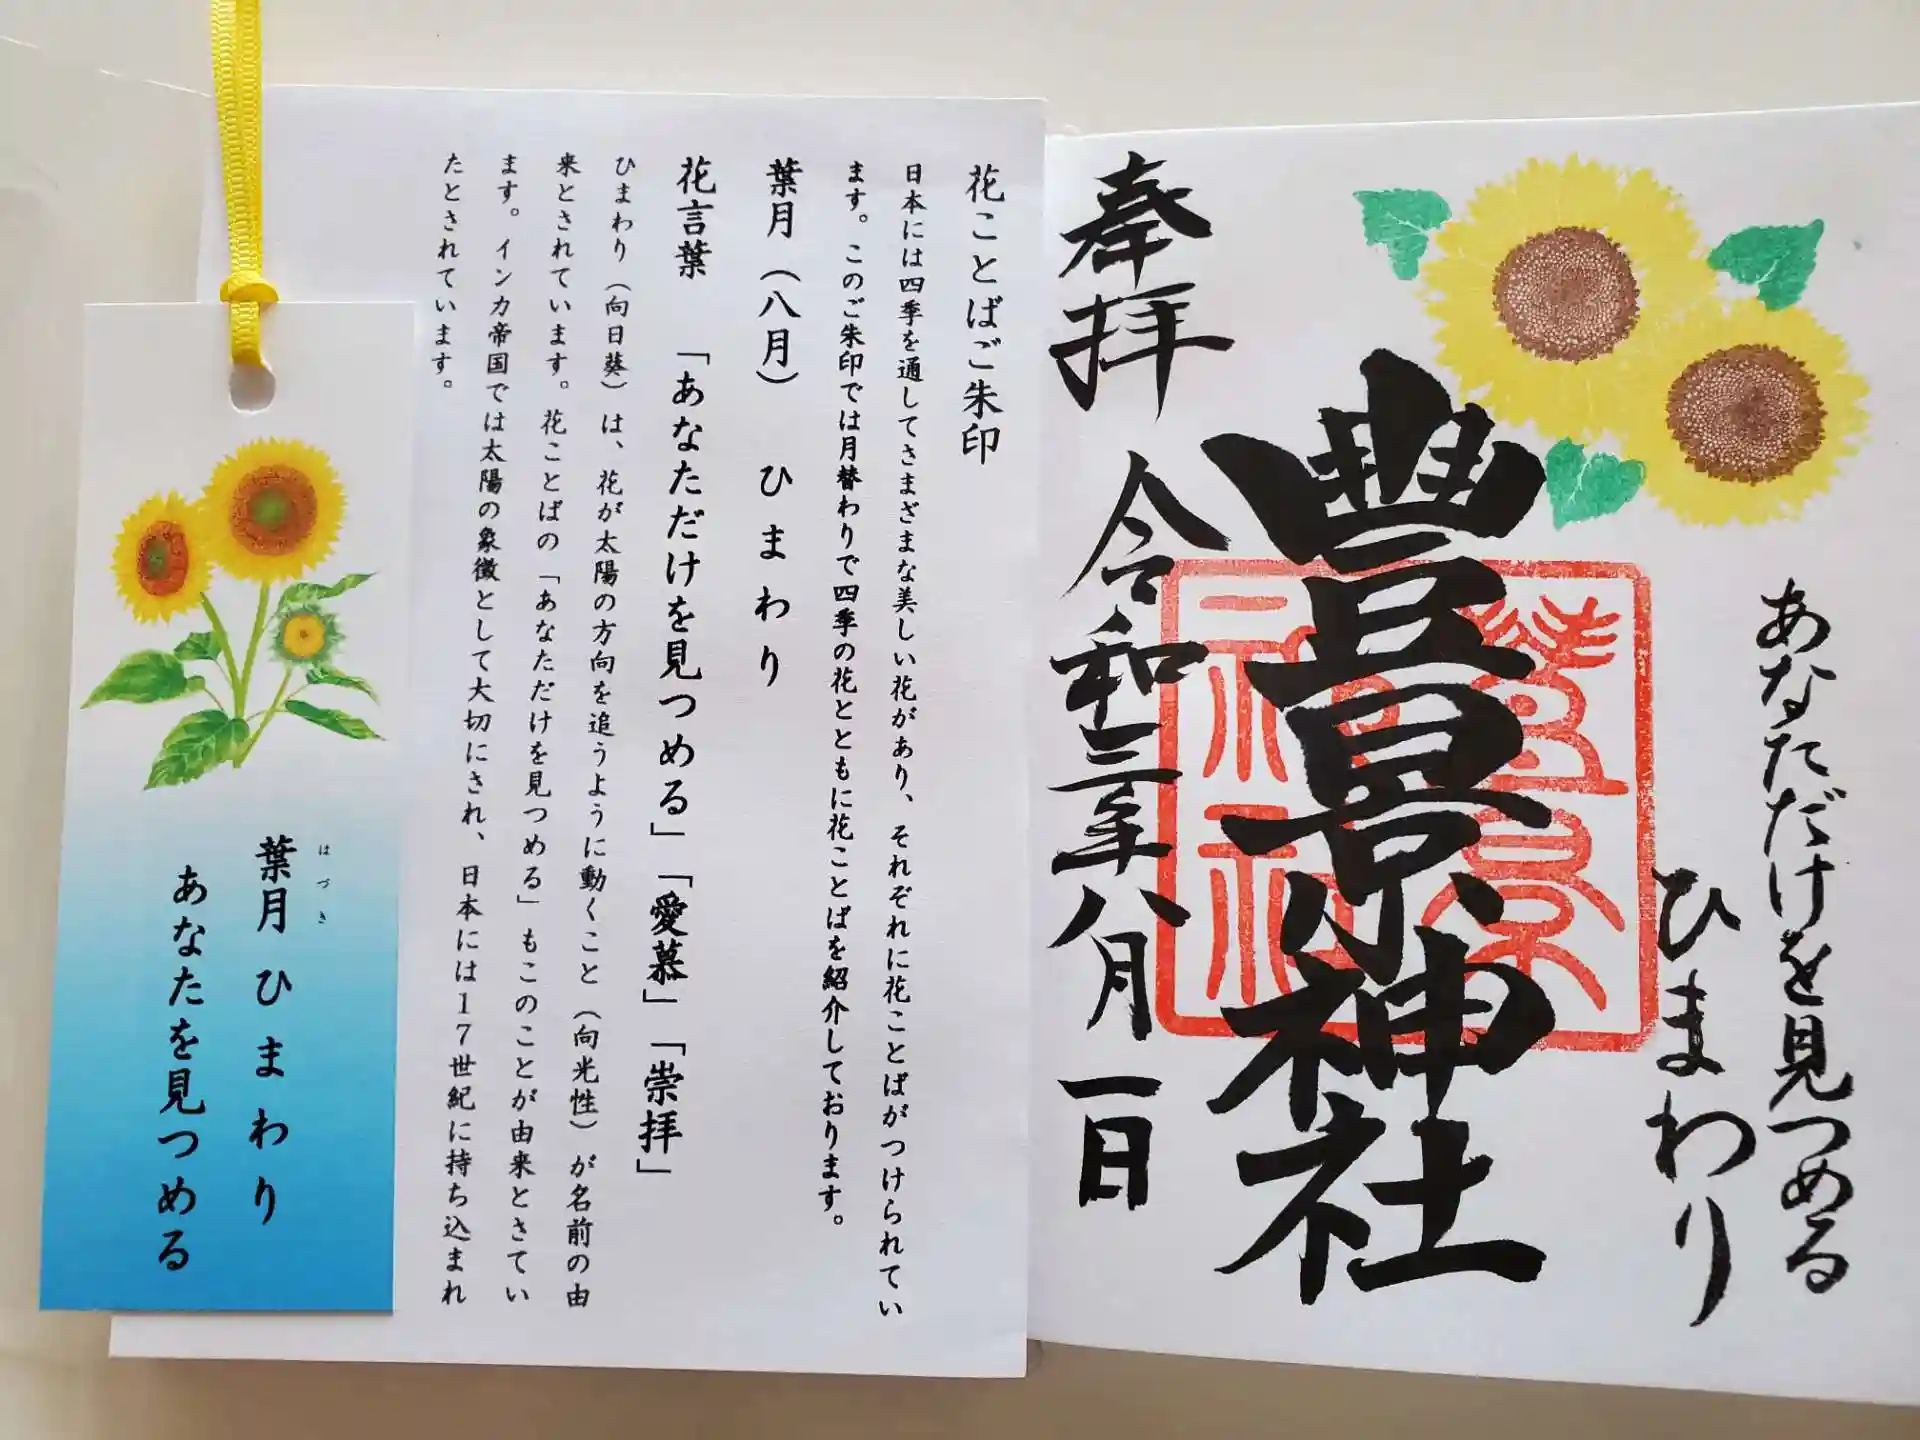 あなただけを見つめる
ひまわり
豊景神社
奉拝 令和三年八月一日
花ことばご朱印
日本には四季を通してさまざまな美しい花があり、それぞれに花ことばがつけられてい
ます。このご朱印では月替わりで四季の花とともに花ことばを紹介しております。
葉月(八月) ひまわり
花言葉 「あなただけを見つめる」「愛慕」「崇拝」
ひまわり(向日葵)は、花が太陽の方向を追うように動くこと(向光性)が名前の由
来とされています。花ことばの「あなただけを見つめる」もこのことが由来とされてい
ます。インカ帝国では太陽の象徴として大切にされ、日本には17世紀に持ち込まれ
たとされています。
はづき
葉月 ひまわり
あなたを見つめる